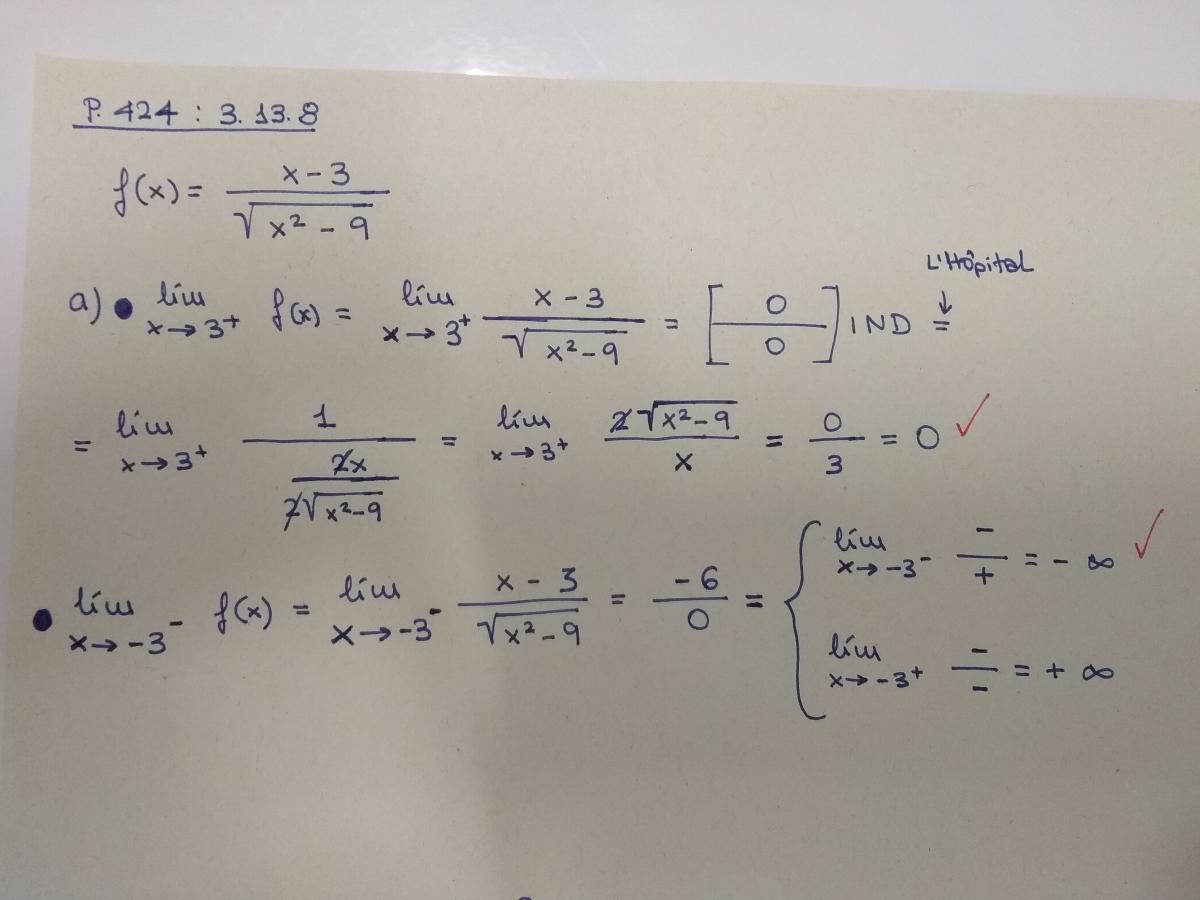 P. 424 : 3.13.8
f(x) = x - 3 / √(x² - 9)
L'Hôpital ↓
a) • lím x→3⁺ f(x) = lím x→3⁺ x - 3 / √(x² - 9) = [0 / 0] IND =
= lím x→3⁺ 1 / (2x / 2√(x² - 9)) = lím x→3⁺ 2√(x² - 9) / x = 0 / 3 = 0 ✓
• lím x→-3⁻ f(x) = lím x→-3⁻ x - 3 / √(x² - 9) = -6 / 0 = { lím x→-3⁻ - / + = - ∞ ✓
lím x→-3⁺ - / - = + ∞